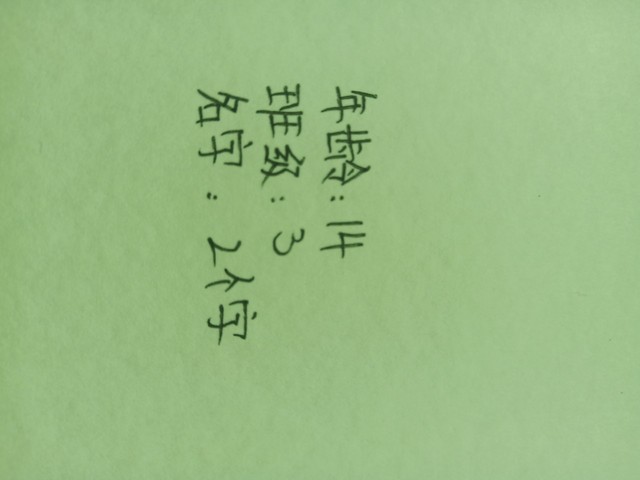 年龄:14
班级:3
名字:2个字